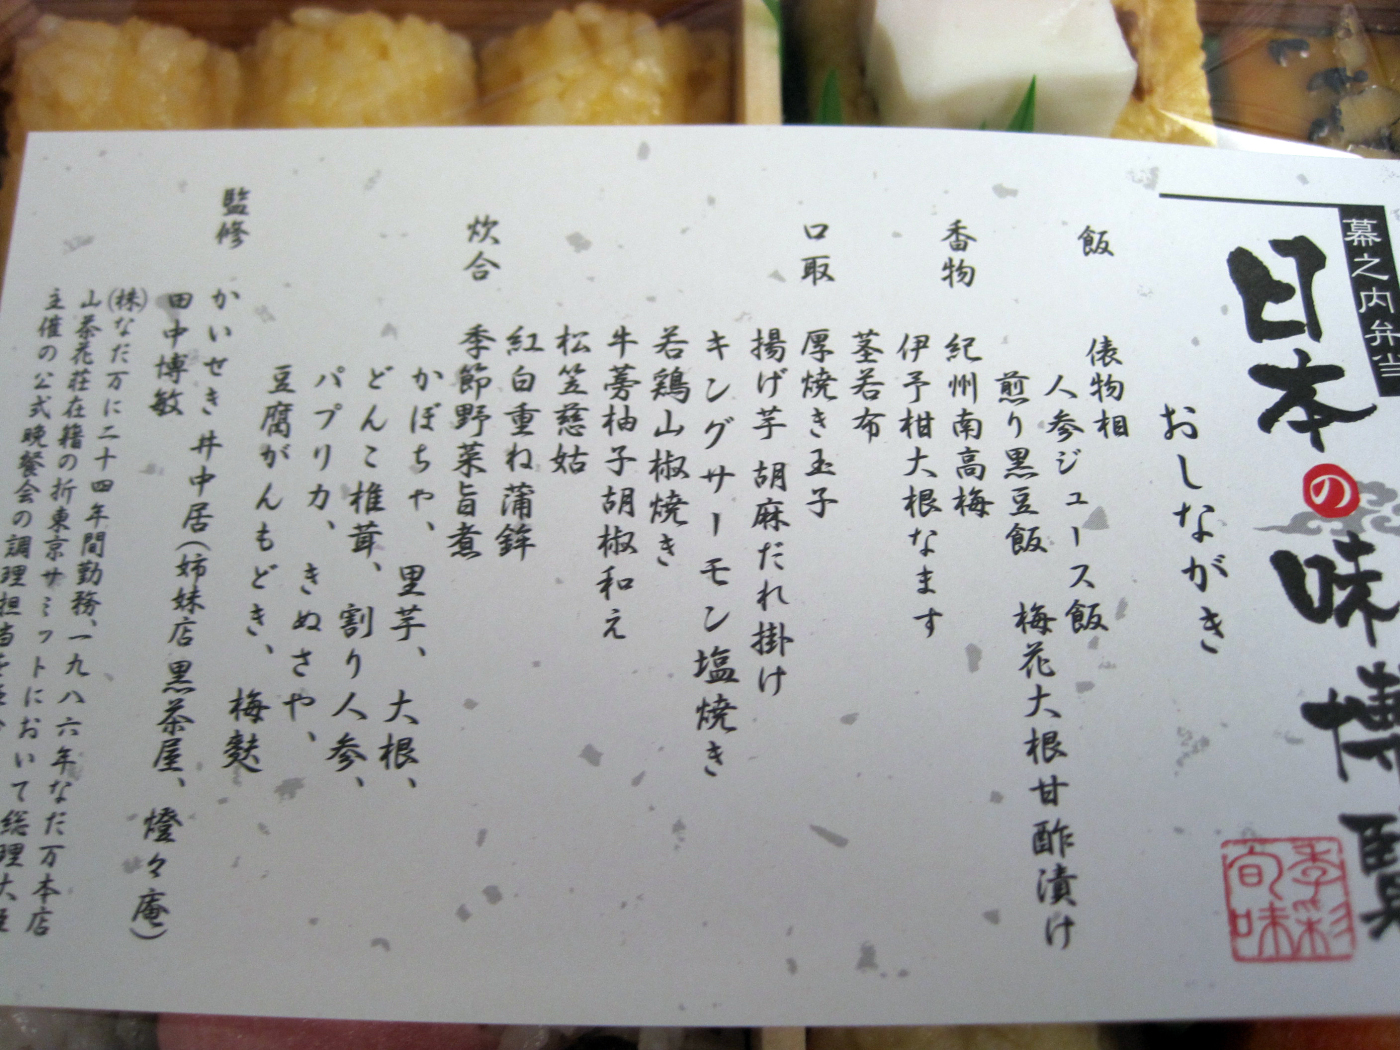 幕之内弁当
日本の味博覧
季彩旬味
おしながき
飯
俵物相
人参ジュース飯
煎り黒豆飯 梅花大根甘酢漬け
香物
紀州南高梅
伊予柑大根なます
茎若布
口取
厚焼き玉子
揚げ芋 胡麻だれ掛け
キングサーモン塩焼き
若鶏山椒焼き
牛蒡柚子胡椒和え
松笠慈姑
紅白重ね蒲鉾
炊合
季節野菜旨煮
かぼちゃ、里芋、大根、
どんこ椎茸、割り人参、
パプリカ、きぬさや、
豆腐がんもどき、梅麩
監修
かいせき 井中居(姉妹店 黒茶屋、燈々庵)
田中博敏
(株)なだ万に二十四年間勤務、一九八六年なだ万本店
山茶花荘在籍の折東京サミットにおいて総理大臣
主催の公式晩餐会の調理担当を